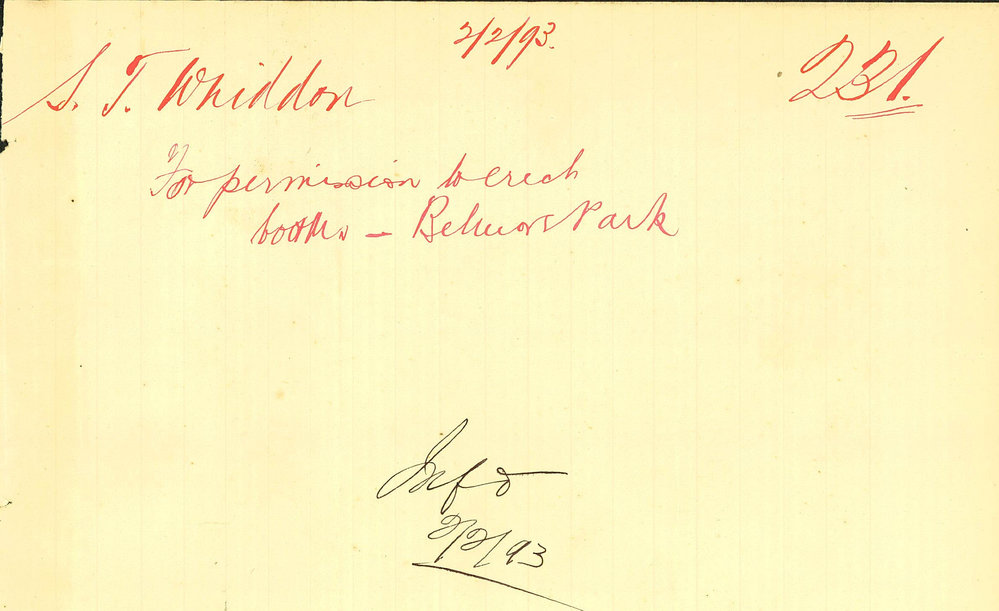 2/2/93.
S. T. Whiddon
231.
For permission to erect
booths – Belmore Park
Infd
2/2/93